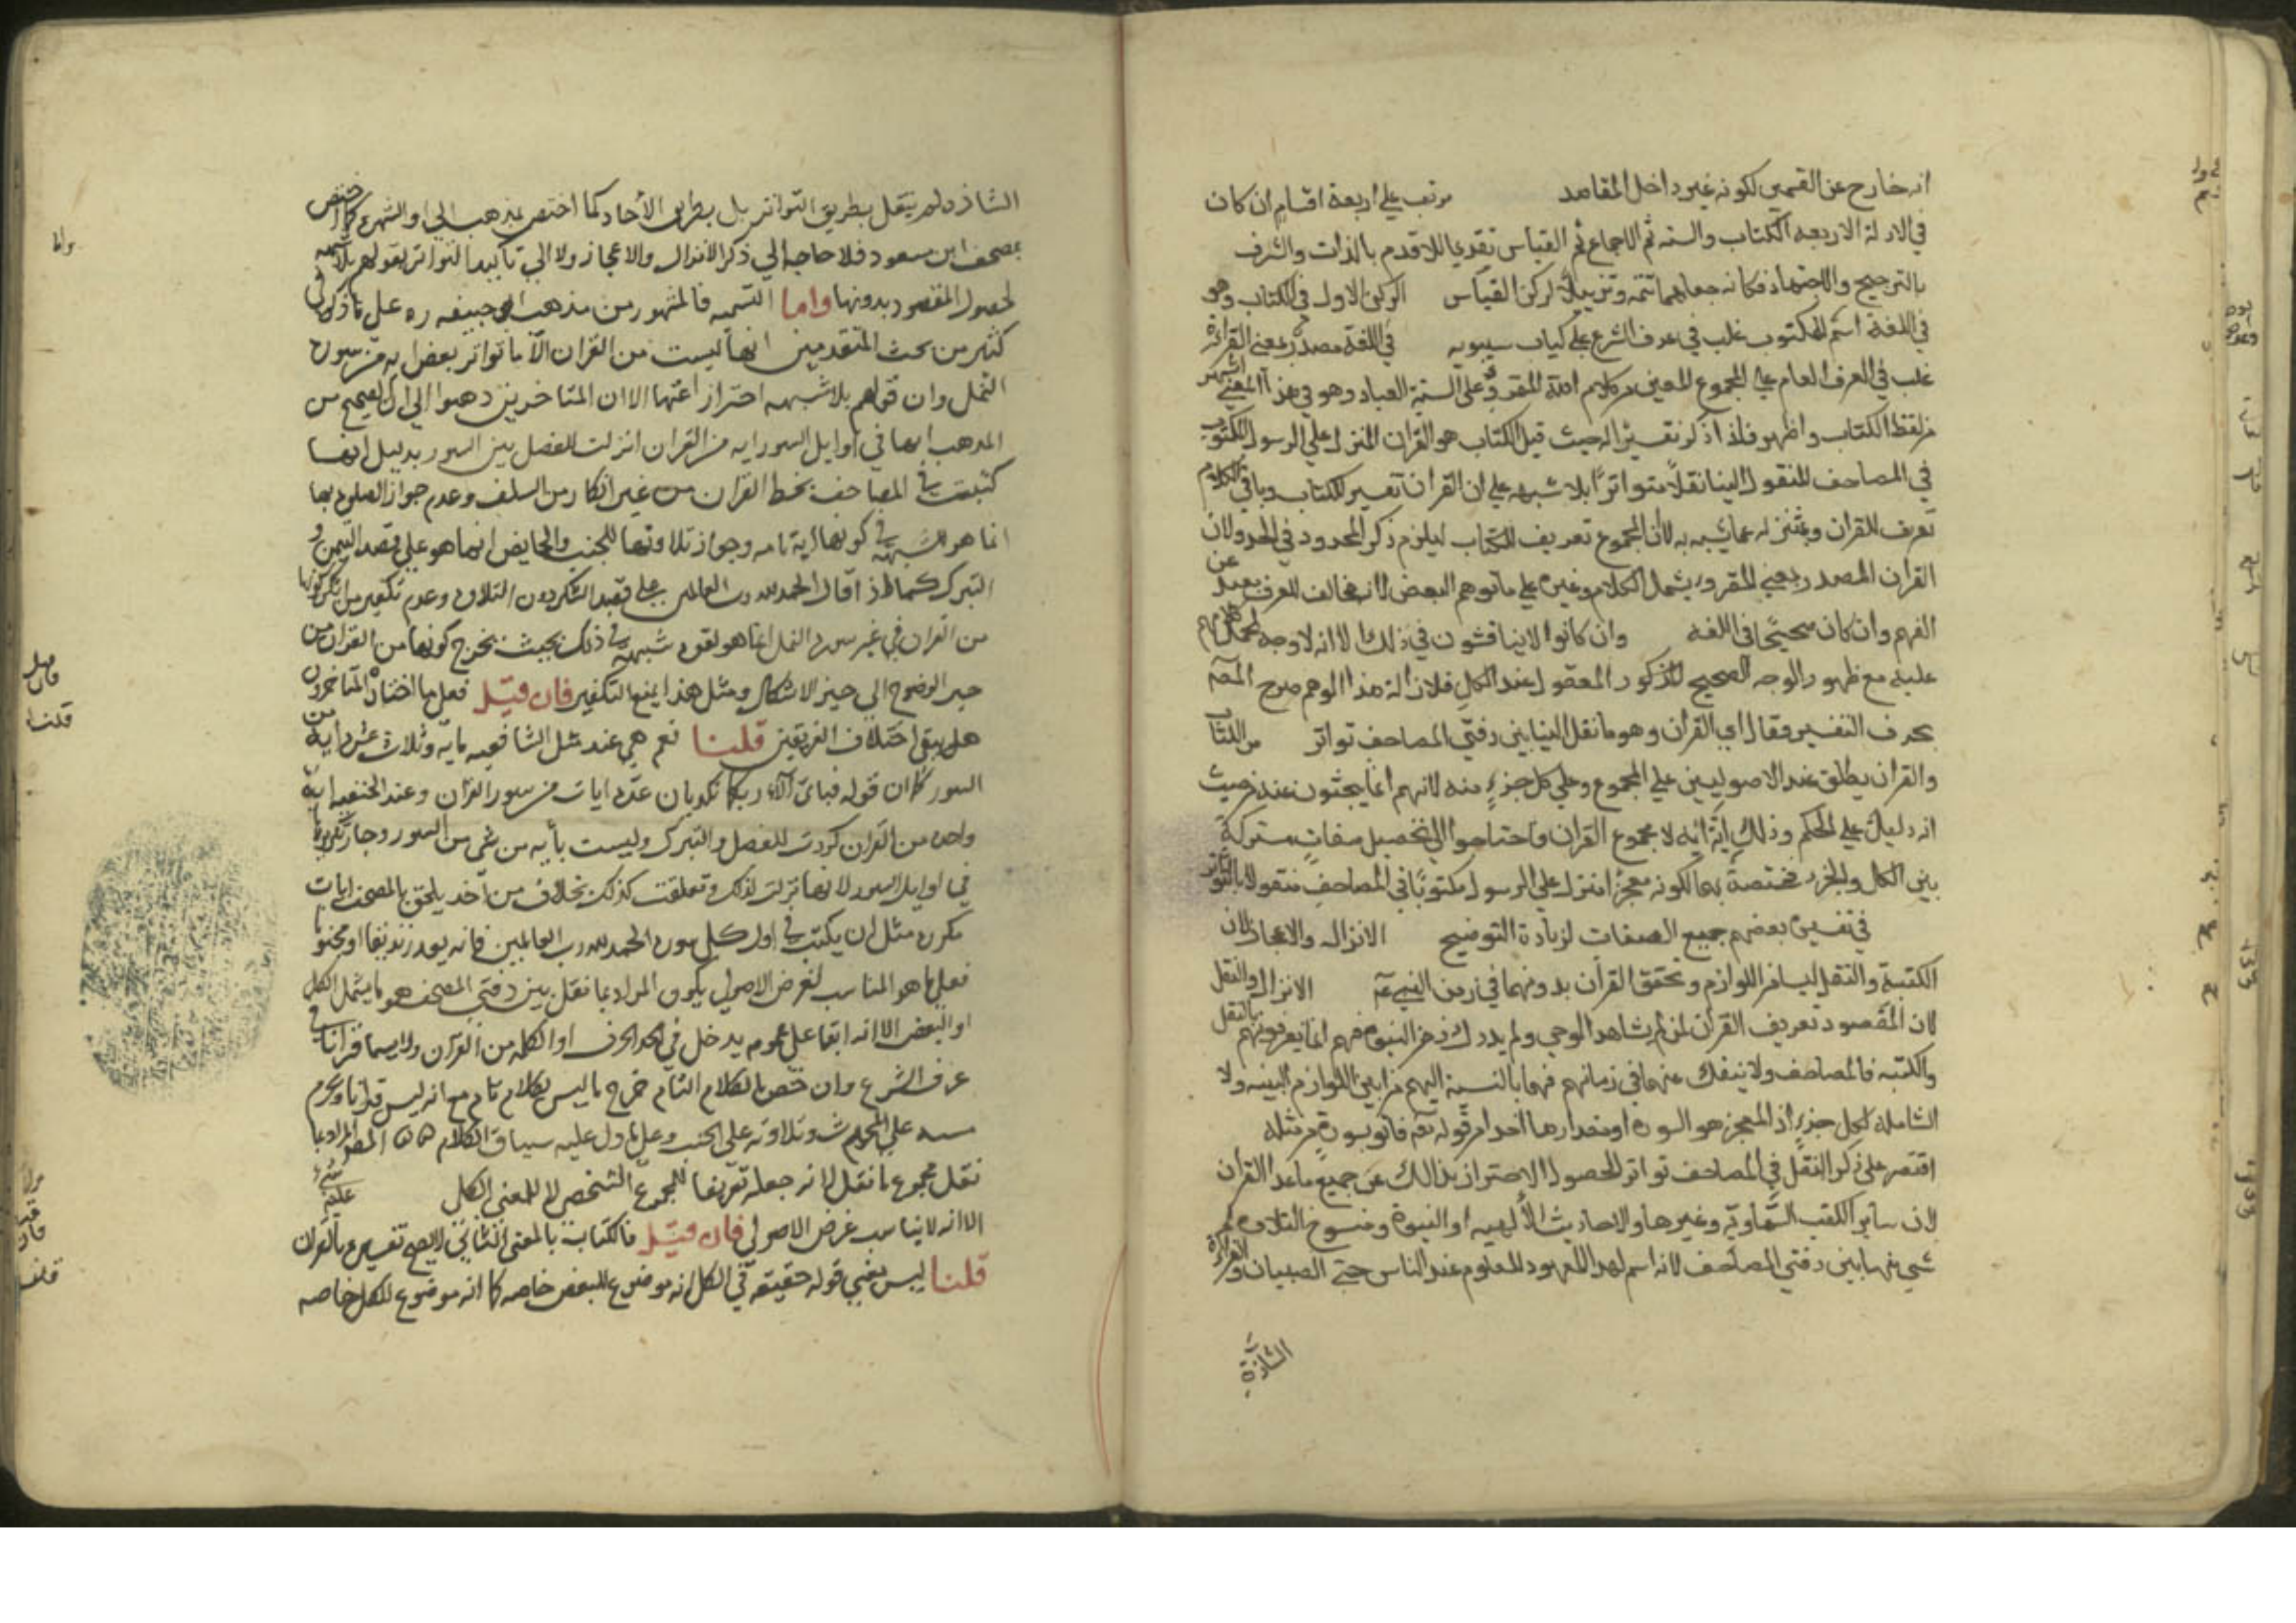 انه خارج عن القسمين لكونه غير داخل المقاصد مرتب علي اربعة اقسام ان كان
في الادلة الاربعه الكتاب والسنه ثم الاجماع ثم القياس تقديما للاقدم بالذات والشرف
بالترجيح والاجتهاد فكانه جعلهما تتمه وتذييلا لركن القياس الركن الاول في الكتاب وهو
في اللغة اسم للمكتوب غلب في عرف الشرع علي كتاب سيبويه في اللغة مصدر بمعني القراءة
غلب في العرف العام علي المجموع المعين من كلام الله المقرو علي السنة العباد وهو في هذا المعني اشهر
من لفظ الكتاب واظهر فلذا ذكر تفسيرا له حيث قيل الكتاب هو القران المنزل علي الرسول المكتوب
في المصاحف المنقول الينا نقلا متواترا بلا شبهه علي ان القران تفسير للكتاب وباقي الكلام
تعريف للقران وتمييز له عما يشبه به لا ان المجموع تعريف للكتاب ليلزم ذكر المحدود في الحد ولا ان
القران المصدر بمعني المقرو يشمل الكلام وغيره علي ما توهم البعض لانه مخالف للعرف بعيد عن
الفهم وان كان صحيحا في اللغه وان كانوا لا يناقشون في ذلك الا انه لا وجه لحمل كلامهم
عليه مع ظهور الوجه الصحيح المذكور المعقول عند الكل فلازالة هذا الوهم صرح المصه
بحرف التفسير فقال اي القران وهو ما نقل الينا بين دفتي المصاحف تواتر
والقران يطلق عند الاصوليين علي المجموع وعلي كل جزء منه لانهم انما يبحثون عنه من حيث
انه دليل علي الحكم وذلك اية اية لا مجموع القران فاحتاجوا الي تحصيل صفات مشتركة
بين الكل والجزء مختصة بهما ككونه معجزا منزلا علي الرسول مكتوبا في المصاحف منقولا بالتواتر
في تفسيره بعضهم جميع الصفات لزيادة التوضيح الانزال والاعجاز لان
الكتبة والنقل ليسا من اللوازم وتحقق القران بدونهما في زمن النبي عم الانزال والنقل
لان المقصود تعريف القران لمن لم يشاهد الوحي ولم يدرك زمن النبوة فهم انما يعرفونهم بالنقل
والكتبه في المصاحف ولا ينفك عنهما في زمانهم فهما بالنسبة اليهم من ابين اللوازم البينه ولا
الشاملة لكل جزء اذ المعجز هو السورة او مقدارها اخذا من قوله تعه فاتوا بسورة من مثله
اقتصر علي ذكر النقل في المصاحف تواتر لحصول الاحتراز بذالك عن جميع ما عدا القران
لان ساير الكتب السماوية وغيرها والاحاديث الالهيه او النبوة ومنسوخ التلاوة لم
شي منها بين دفتي المصاحف لانه اسم لهذا المعهود المعلوم عند الناس حتي الصبيان والقراءة
الشاذة
الشاذه لم ينقل بطريق التواتر بل بطريق الأحاد كما اختص بمذهب ابي او الشهره كما اختص
بمصحف ابن مسعود فلا حاجه الي ذكر الانزال والاعجاز ولا الي تاكيد التواتر بقولهم بلا شبهه
لحصول المقصود بدونها واما التسميه فالمشهور من مذهب ابي حنيفه ره علي ما ذكر في
كثير من بحث المتقدمين انها ليست من القران الا ما تواتر بعض ايه من سورة
النمل وان قولهم بلا شبهه احتراز عنها الا ان المتاخرين ذهبوا الي ان الصحيح من
المذهب انها في اوايل السور ايه من القران انزلت للفصل بين السور بدليل انها
كتبت في المصاحف بخط القران من غير انكار من السلف وعدم جواز الصلوة بها
انما هو للشبهة في كونها أية تامه وجواز تلاوتها للجنب والحايض انما هو علي قصد التيمن و
التبرك كما اذا قال الحمد لله رب العالمين علي قصد الشكر دون التلاوة وعدم تكفير من انكر كونها
من القران في غير سورة النمل انما هو لقوة شبهة في ذلك بحيث يخرج كونها من القران من
حيز الوضوح الي حيز الاشكال ومثل هذا يمنع التكفير فان قيل فعلي ما اختاره المتاخرون
هل يبقي اختلاف الفريقين قلنا نعم هي عند الشافعيه مايه وثلاث عشره ايه من
السور كما ان قوله فباي آلاء ربكما تكذبان عدة ايات من سور القران وعند الحنفيه اية
واحده من القران كررت للفصل والتبرك وليست بأيه من شي من السور وجاز تكريرها
في اوايل السور لانها نزلت لذلك وتعلقت كذلك بخلاف من اخذ يلحق بالمصحف ايات
مكرره مثل ان يكتب في اول كل سورة الحمد لله رب العالمين فانه يعد زنديقا او مجنونا
فعلي ما هو المناسب لغرض الاصولي يكون المراد بما نقل بين دفتي المصحف هو ما يشمل الكل
او البعض الا انه ابقا علي عمومه يدخل في الحد الحرف او الكلمه من القران ولا يسما قرانا في
عرف الشرع وان خص بالكلام التام خرج ما ليس بكلام تام مع انه ليس قرانا ويحرم
مسه علي المحدث وتلاوته علي الجنب وعلي ما دل عليه سياق الكلام المراد بما
نقل مجموع ما نقل لانه جعله تعريفا للمجموع الشخصي لا للمعني الكل
الا انه لا يناسب غرض الاصولي فان قيل فالكتاب بالمعني الثاني لا يصح تفسيره بالقران
قلنا ليس بمعني قوله حقيقه في الكل انه موضوع للبعض خاصه كما انه موضوع للكل خاصه